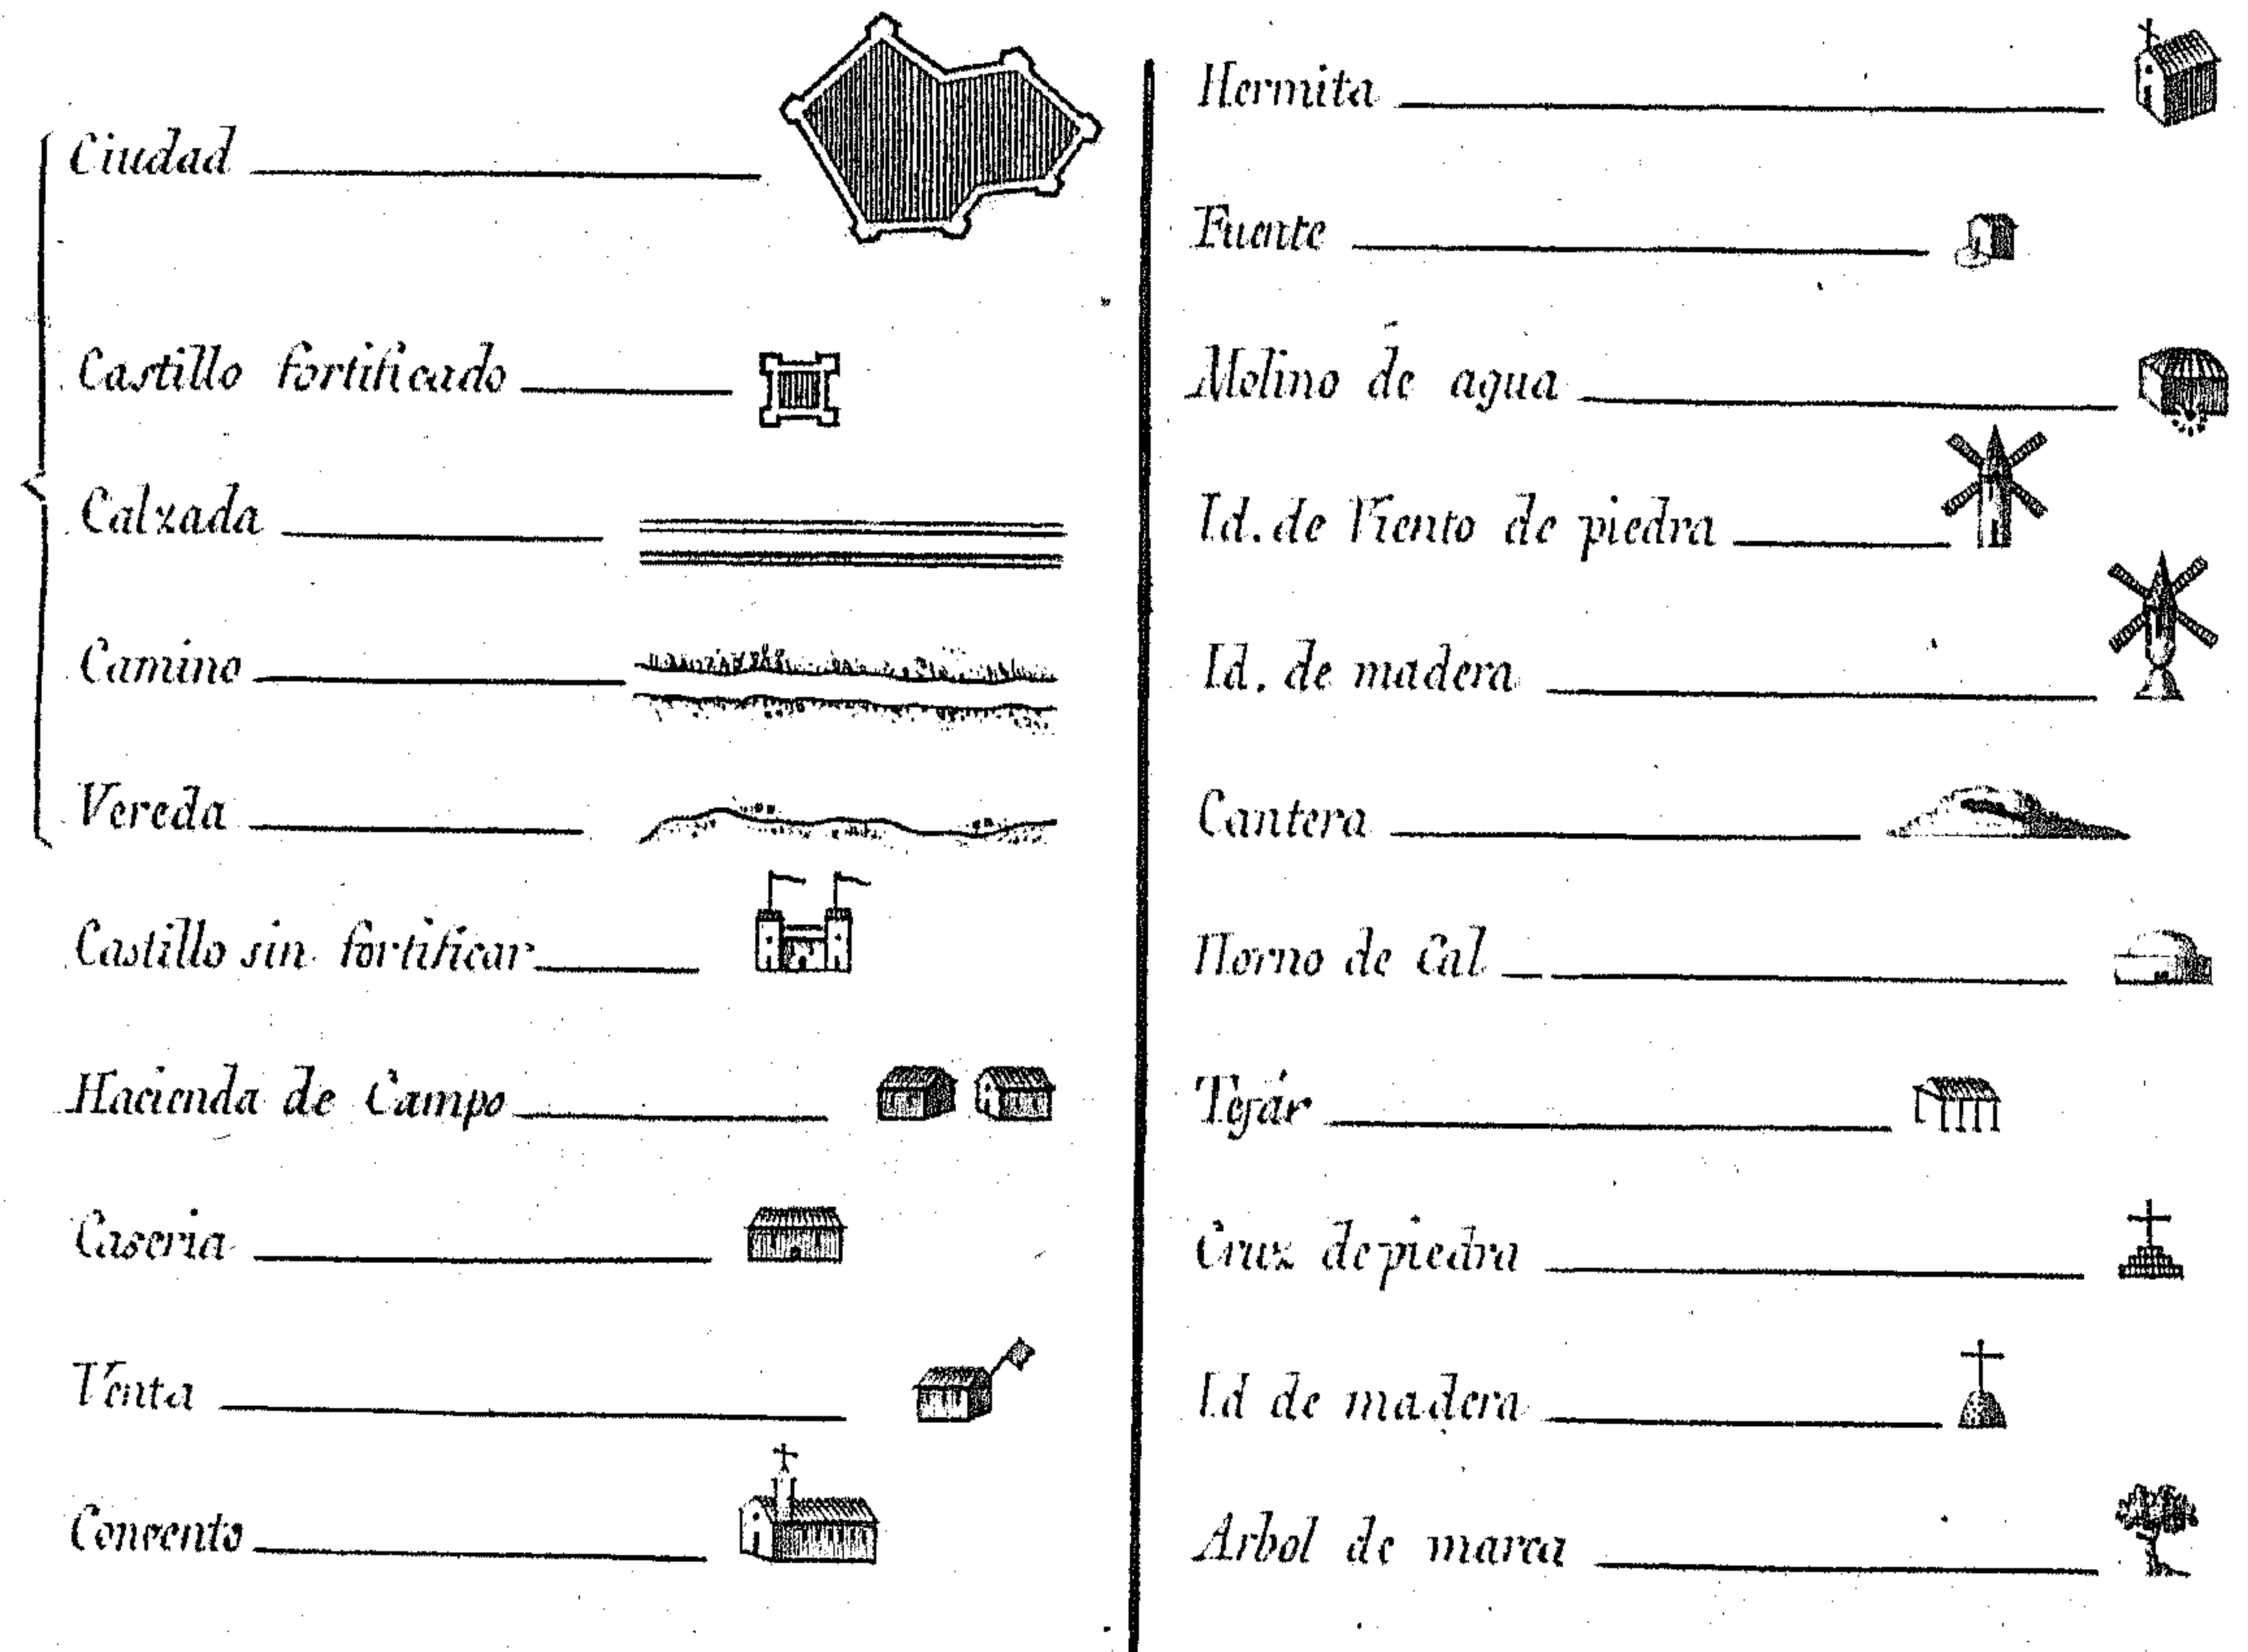 Ciudad
Castillo fortificado
Calzada
Camino
Vereda
Castillo sin fortificar
Hacienda de Campo
Caseria
Venta
Convento
Hermita
Fuente
Molino de agua
Id. de Viento de piedra
Id. de madera
Cantera
Horno de Cal
Tejár
Cruz de piedra
Id de madera
Arbol de marca